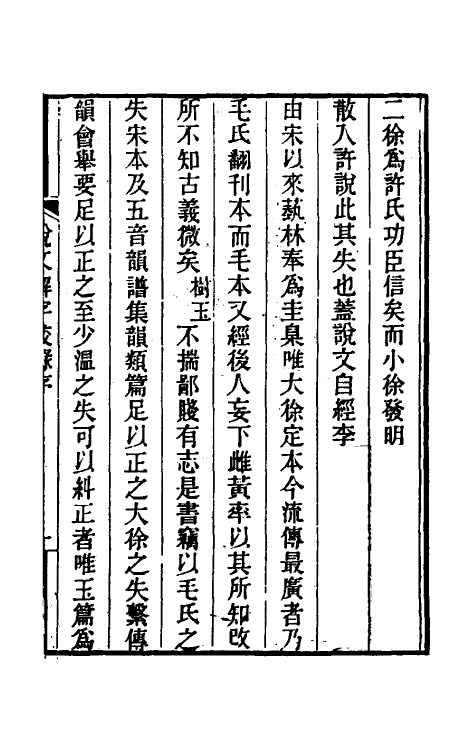 二徐爲許氏功臣信矣而小徐發明
散入許說此其失也蓋說文自經李
由宋以來蓺林奉爲圭臬唯大徐定本今流傳最廣者乃
毛氏翻刊本而毛本又經後人妄下雌黃率以其所知改
所不知古義微矣樹玉不揣鄙賤有志是書竊以毛氏之
失宋本及五音韻譜集韻類篇足以正之大徐之失繫傳
韻會舉要足以正之至少溫之失可以糾正者唯玉篇爲
說文解字校錄序